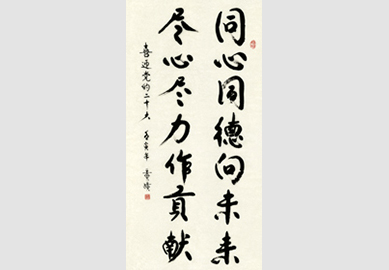 同心同德向未来
尽心尽力作贡献
喜迎党的二十大